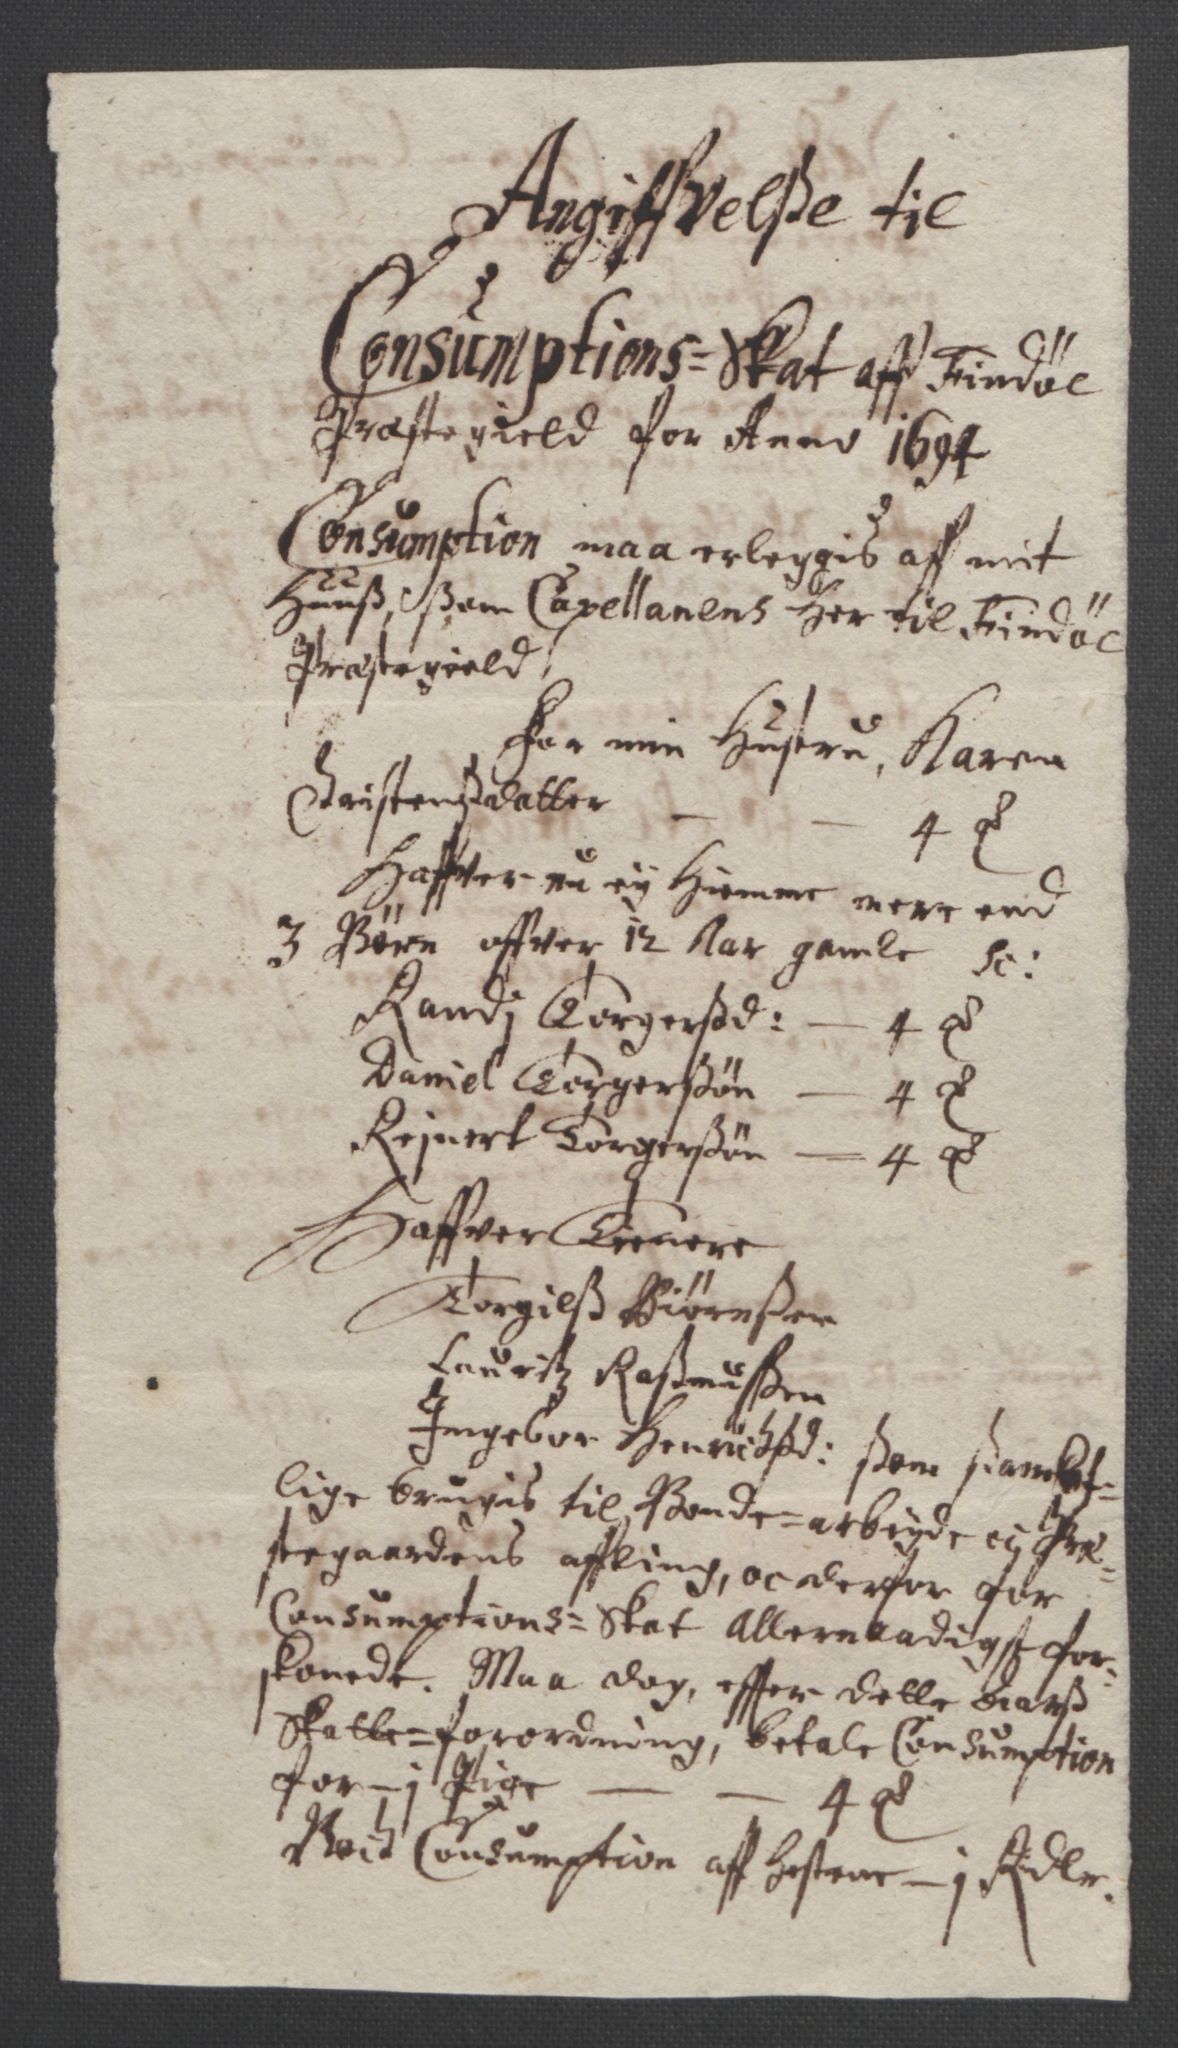 Angiffvelße til
Consumptions=Skat aff Findöe
Præstegield for Anno 1694
Consumption maa erleggis aff mit
Huuß, ßom Capellanens her til Findöe
Præstegield,
For min Hustru, Karen
Christensdatter — — 4 ß
Haffver nu ey hiemme mere end
3 Börn offver 12 Aar gamle sc:
Randj Torgersßd: — 4 ß
Daniel Torgersßön — 4 ß
Rejnert Torgersßön — 4 ß
Haffver Tienere
Torgilß Biörnßen
Lauritz Raßmußen
Ingebor Henrichsd: ßom ßambt=
lige brugis til Bonde=arbeyde ej Præ=
stegaardens affling, oc derfor for
Consumptions=Skat Allernaadigst for=
skonede. Maa dog, efter dette aarß
Skatte=forordning, betale Consumption
for – j Pige — — 4 ß
Consumption aff hestene – j Rdlr.